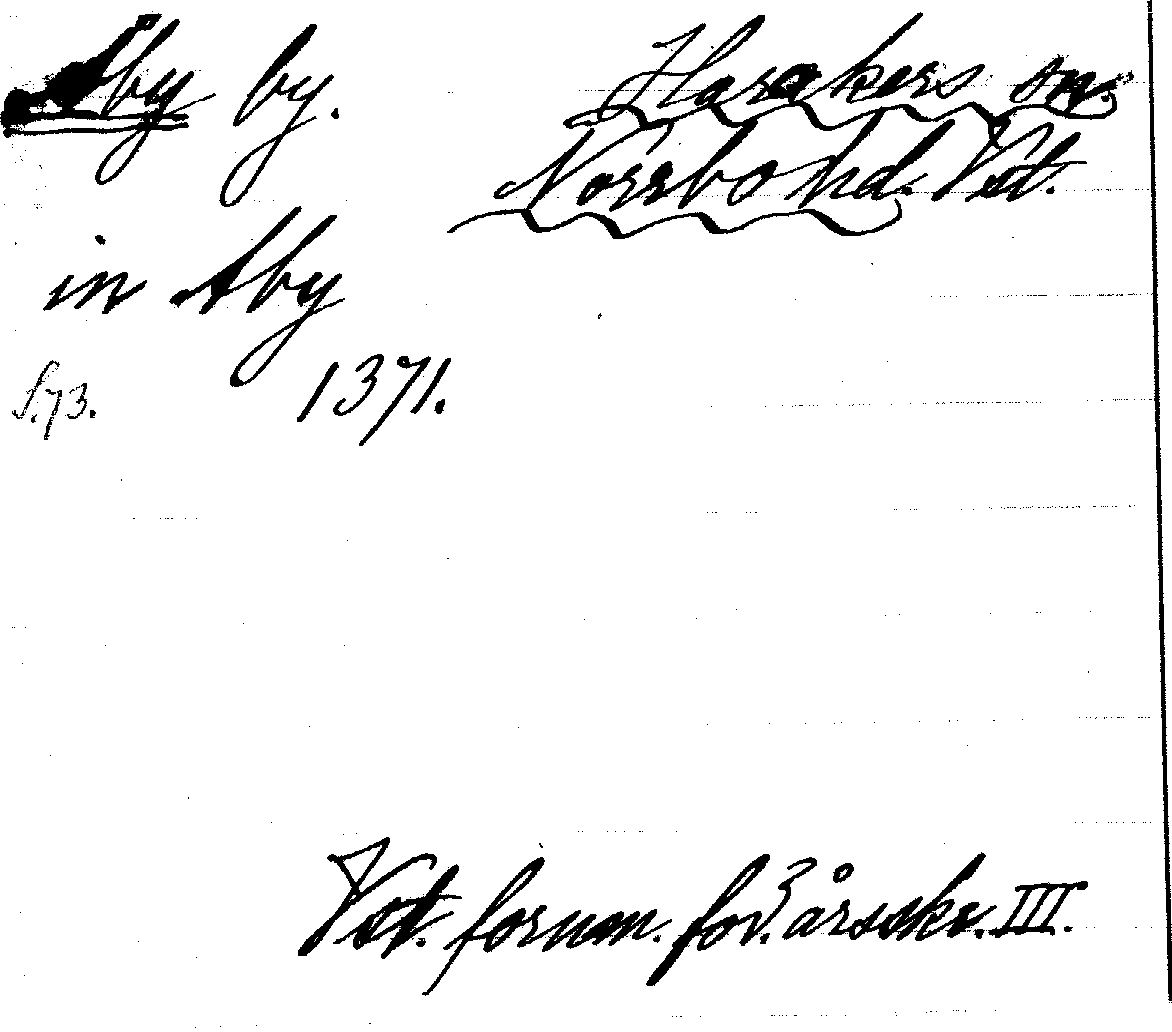 Åby by. Harakers sn.
Norrbo hd. Vst.
in Aby
S. 73. 1371.
Vst. fornm. för. årsskr. III.